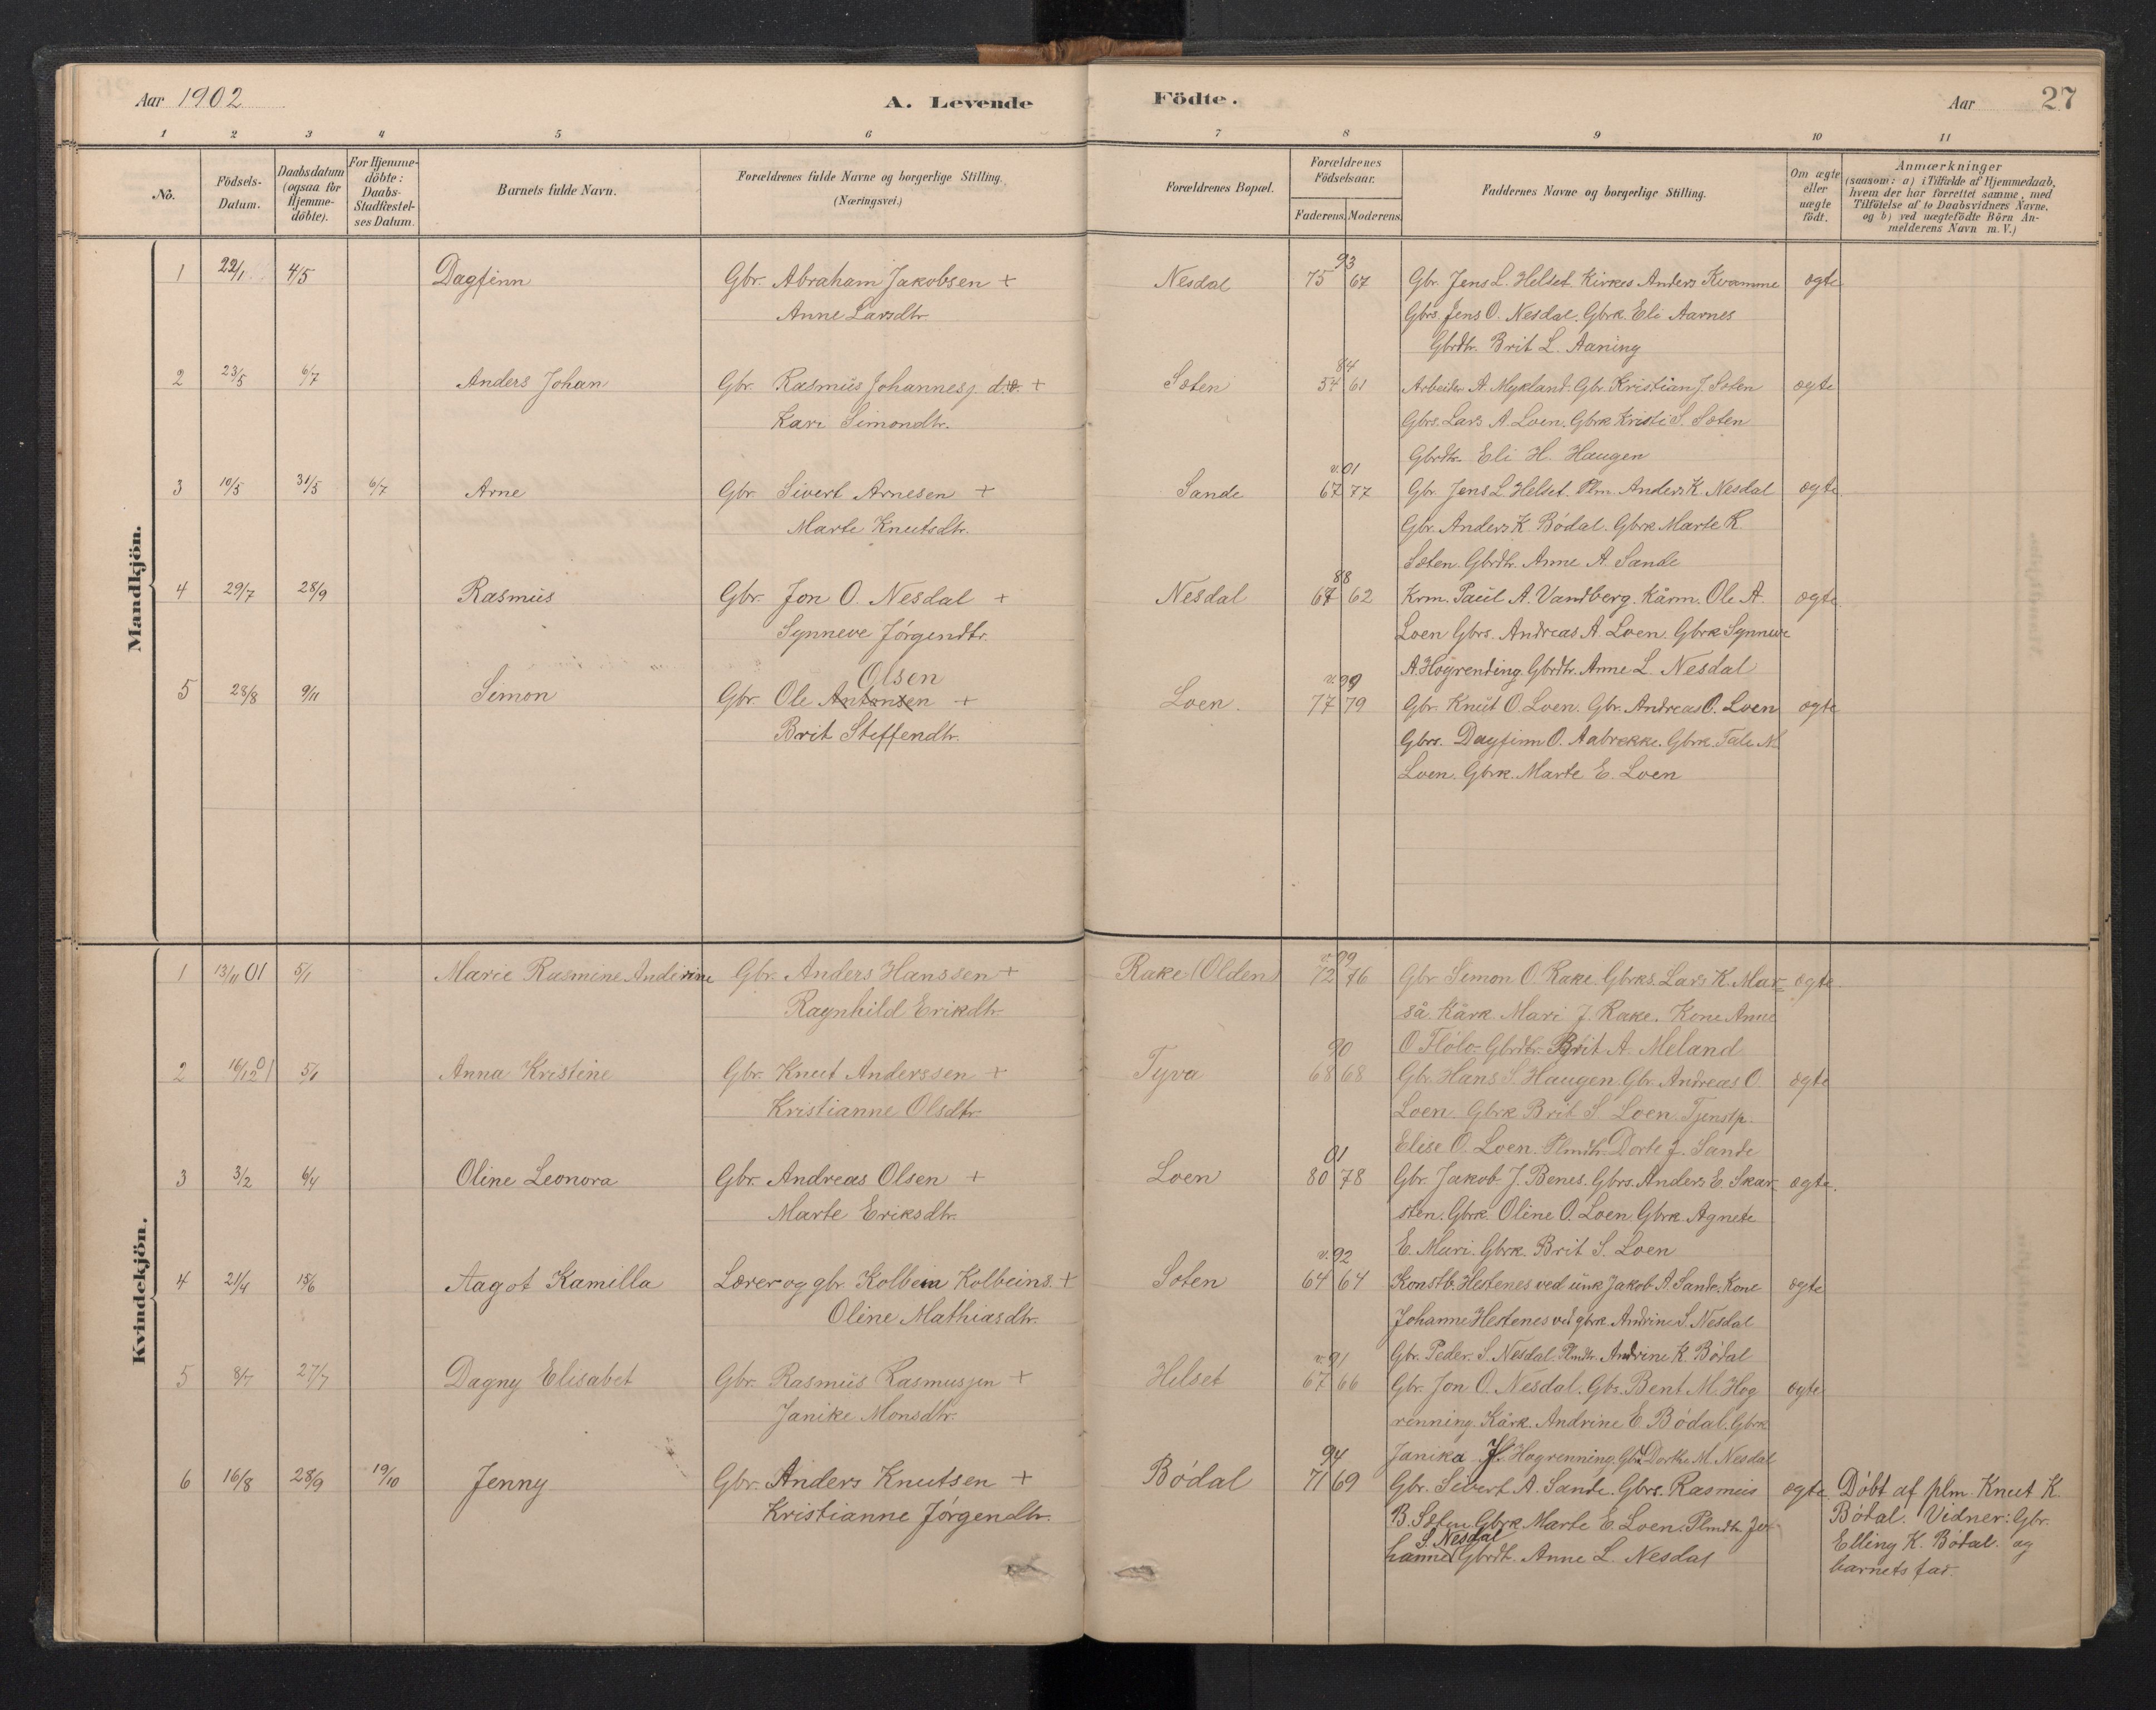 Aar 1902
A. Levende Födte.
Aar 27
1 2 3 4 5 6 7 8 9 10 11
No.
Födsels-Datum.
Daabsdatum (ogsaa for Hjemme-döbte).
For Hjemme-döbte: Daabs-Stadfæstel-ses Datum.
Barnets fulde Navn.
Forældrenes fulde Navne og borgerlige Stilling. (Næringsvei.)
Forældrenes Bopæl.
Forældrenes Födselsaar. Faderens. Moderens.
Faddernes Navne og borgerlige Stilling.
Om ægte eller uægte födt.
Anmærkninger (saasom: a) i Tilfælde af Hjemmedaab, hvem der har forrettet samme, med Tilföielse af to Daabsvidners Navne, og b) ved uægtefödte Börn Anmelderens Navn m. V.)
Mandkjön.
93
1 22/1 4/5 Dagfinn Gbr. Abraham Jakobsen + Nesdal 75 67 Gbr. Jens L. Helset. Kirkes Anders Kvamme ægte
Anne Larsdtr. Gbrs. Jens O. Nesdal. Gbrk. Eli Aarnes
Gbrdtr. Brit L. Aaning
84
2 23/5 6/7 Anders Johan Gbr. Rasmus Johannesj. d.e. + Sæten 54 61 Arbeider A. Mykland. Gbr. Kristian J. Sæten ægte
Kari Simondtr. Gbrs. Lars A. Loen. Gbrk Kristi S. Sæten
Gbrdtr. Eli H. Haugen
v. 01
3 10/5 31/5 6/7 Arne Gbr. Sivert Arnesen + Sande 67 77 Gbr. Jens L. Helset. Plm. Anders K. Nesdal ægte
Marte Knutsdtr. Gbr. Anders K. Bödal. Gbrk Marte R.
Sæten. Gbrdtr. Anne A. Sande
88
4 29/7 28/9 Rasmus Gbr. Jon O. Nesdal + Nesdal 67 62 Krm. Paul A. Vandberg. Kårm. Ole A. ægte.
Synneve Jörgendtr. Loen Gbrs. Andreas A. Loen. Gbrk Synneve
Olsen A. Hogrending. Gbrdtr. Anne L. Nesdal
v. 99
5 28/8 9/11 Simon Gbr. Ole Antonsen + Loen. 77 79 Gbr. Knut O. Loen. Gbr. Andreas O. Loen ægte
Brit Steffendtr. Gbrs. Dagfinn O. Aabrekke. Gbrk. Tale N.
Loen. Gbrk. Marte E. Loen
Kvindekjön.
v. 99
1 13/11 01 5/1 Marie Rasmine Anderine Gbr. Anders Hanssen + Rake (Olden) 72 76 Gbr. Simon O. Rake. Gbrks. Lars K. Mar- ægte.
Ragnhild Erikdtr. så. Kårk. Mari J. Rake. Kone Anne
90 O. Flölo. Gbrdtr. Brit A. Meland
2 16/12 01 5/1 Anna Kristine Gbr. Knut Anderssen + Tyva 68 68 Gbr. Hans S. Haugen. Gbr. Andreas O. ægte
Kristianne Olsdtr. Loen. Gbrk Brit S. Loen. Tjenstp.
01 Elise O. Loen. Plmdtr. Dorte J. Sande
3 3/2 6/4 Oline Leonora Gbr. Andreas Olsen + Loen 80 78 Gbr. Jakob J. Benes. Gbrs. Anders E. Skar- ægte.
Marte Eriksdtr. sten. Gbrk. Oline O. Loen. Gbrk. Agnete
v. 92 E. Muri. Gbrk. Brit S. Loen
4 21/4 15/6 Aagot Kamilla Lærer og gbr Kolbein Kolbeins. + Sæten 64 64 Konstb. Hestenes ved unk Jakob A. Sande. Kone ægte
Oline Mathiasdtr. Johanne Hestenes ved gbrk. Andrine S. Nesdal
v. 91 Gbr. Peder. S. Nesdal. Plmdtr. Andrine K. Bödal
5 8/7 27/7 Dagny Elisabet Gbr. Rasmus Rasmussen + Helset 67 66 Gbr. Jon O. Nesdal. Gbs. Bent M. Hog ægte
Janike Monsdtr. renning. Kårk. Andrine E. Bödal. Gbrk
94 Janika J. Hogrenning. Gbrd Dorthe M. Nesdal
6 16/8 28/9 19/10 Jenny Gbr. Anders Knutsen + Bödal 71 69 Gbr. Sivert A. Sande. Gbrs. Rasmus ægte. Döbt af plm. Knut K.
Kristianne Jörgendtr. B. Sæten. Gbrk Marte E. Loen. Plmdtr Jo- Bödal. Vidner: Gbr.
S. Nesdal
hanne Gbrdt. Anne L. Nesdal Elling K. Bödal. og
barnets far.